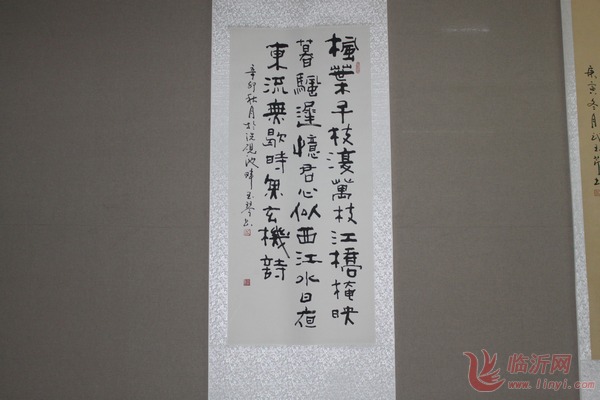 楓葉千枝復萬枝江橋掩映
暮颿遲憶君心似西江水日夜
東流無歇時魚玄機詩
辛卯秋月於洗硯池畔
庚寅冬月
临沂网
www.linyi.com